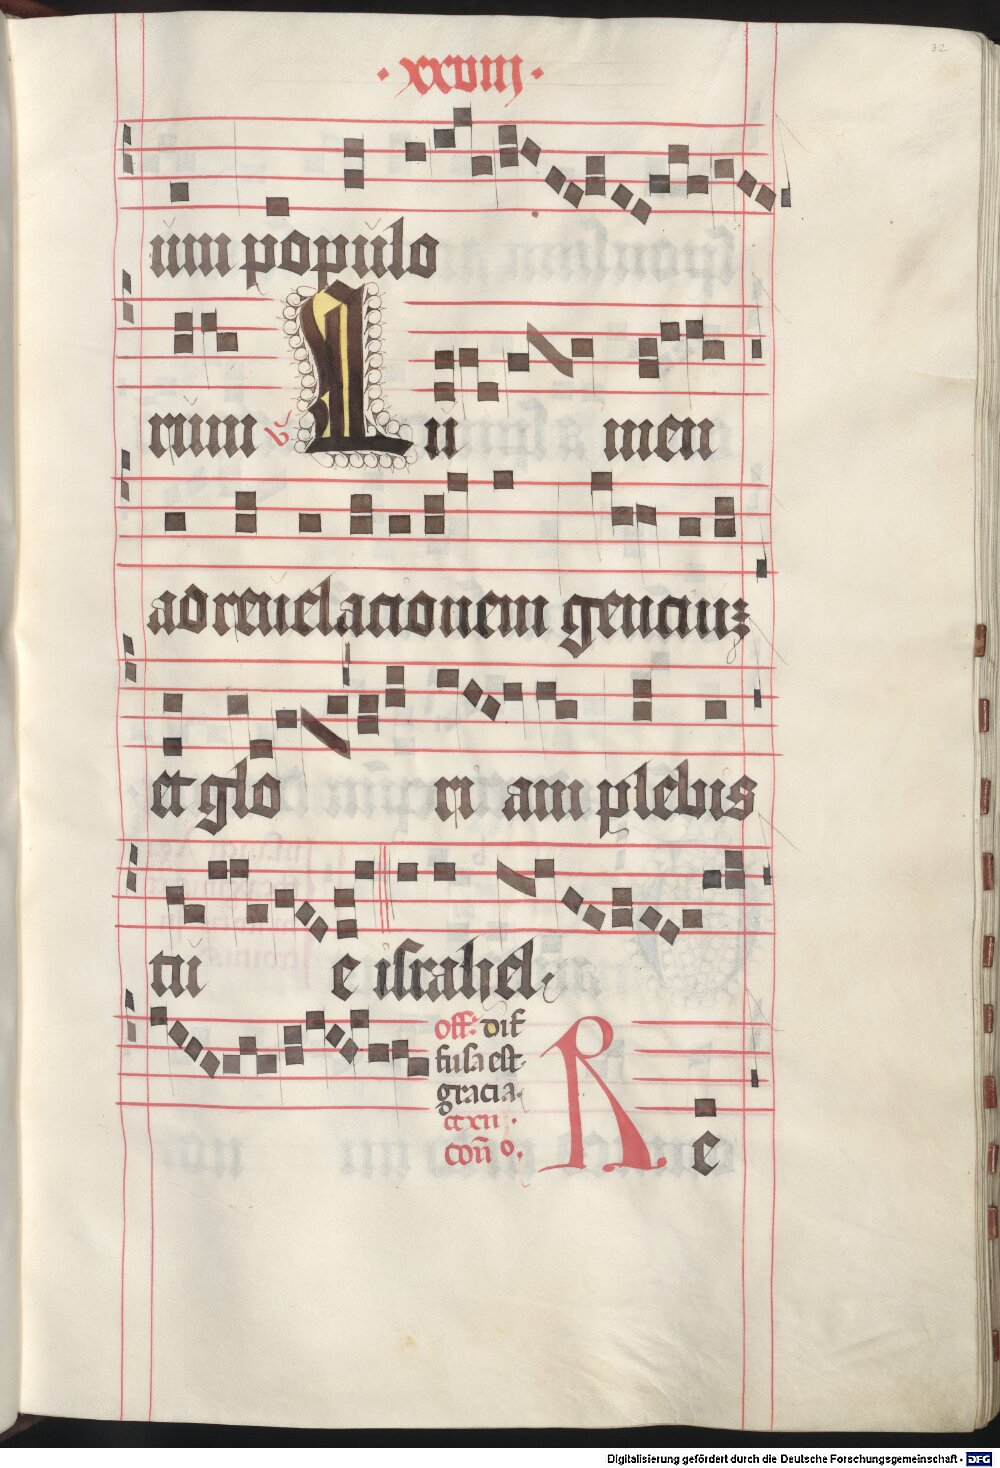 · xxviij ·
32
um populo
rum ℣ Lu men
ad reuelacionem genciuʒ
et glo ri am plebis
tu e israhel·
off: dif
fusa est
gracia·
ccxii·
coñ o. Re
Digitalisierung gefördert durch die Deutsche Forschungsgemeinschaft - DFG